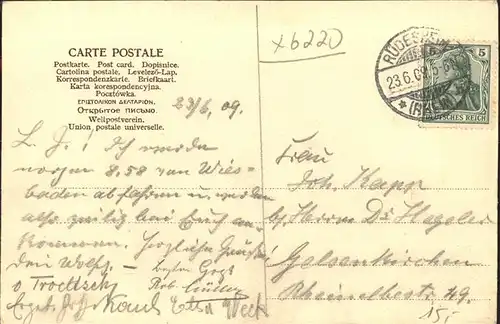 x6220
CARTE POSTALE
Postkarte. Post card. Dopisnice.
Cartolina postale, Levelező-Lap.
Korrespondenzkarte. Briefkaart.
Karta korespondencyjna.
Pocztówka.
ΕΠΙΣΤΟΛΙΚΟΝ ΔΕΛΤΑΡΙΟΝ.
Открытое письмо
Weltpostverein.
Union postale universelle.
RÜDESHEIM
23.6.09.
* (RHEIN)
5
DEUTSCHES REICH
23/6. 09.
L. J.! Ich werde
morgen 8.58 von Wies-
baden abfahren u. werde
also zeitig bei Euch an-
kommen. Herzliche Grüße
dein Wolfg.
besten Gruß
v Troeltzsch
Frau
Joh. Kapp
bei Herrn Dr Hegeler
Gelsenkirchen
Rheinelbestr. 49.
15,-